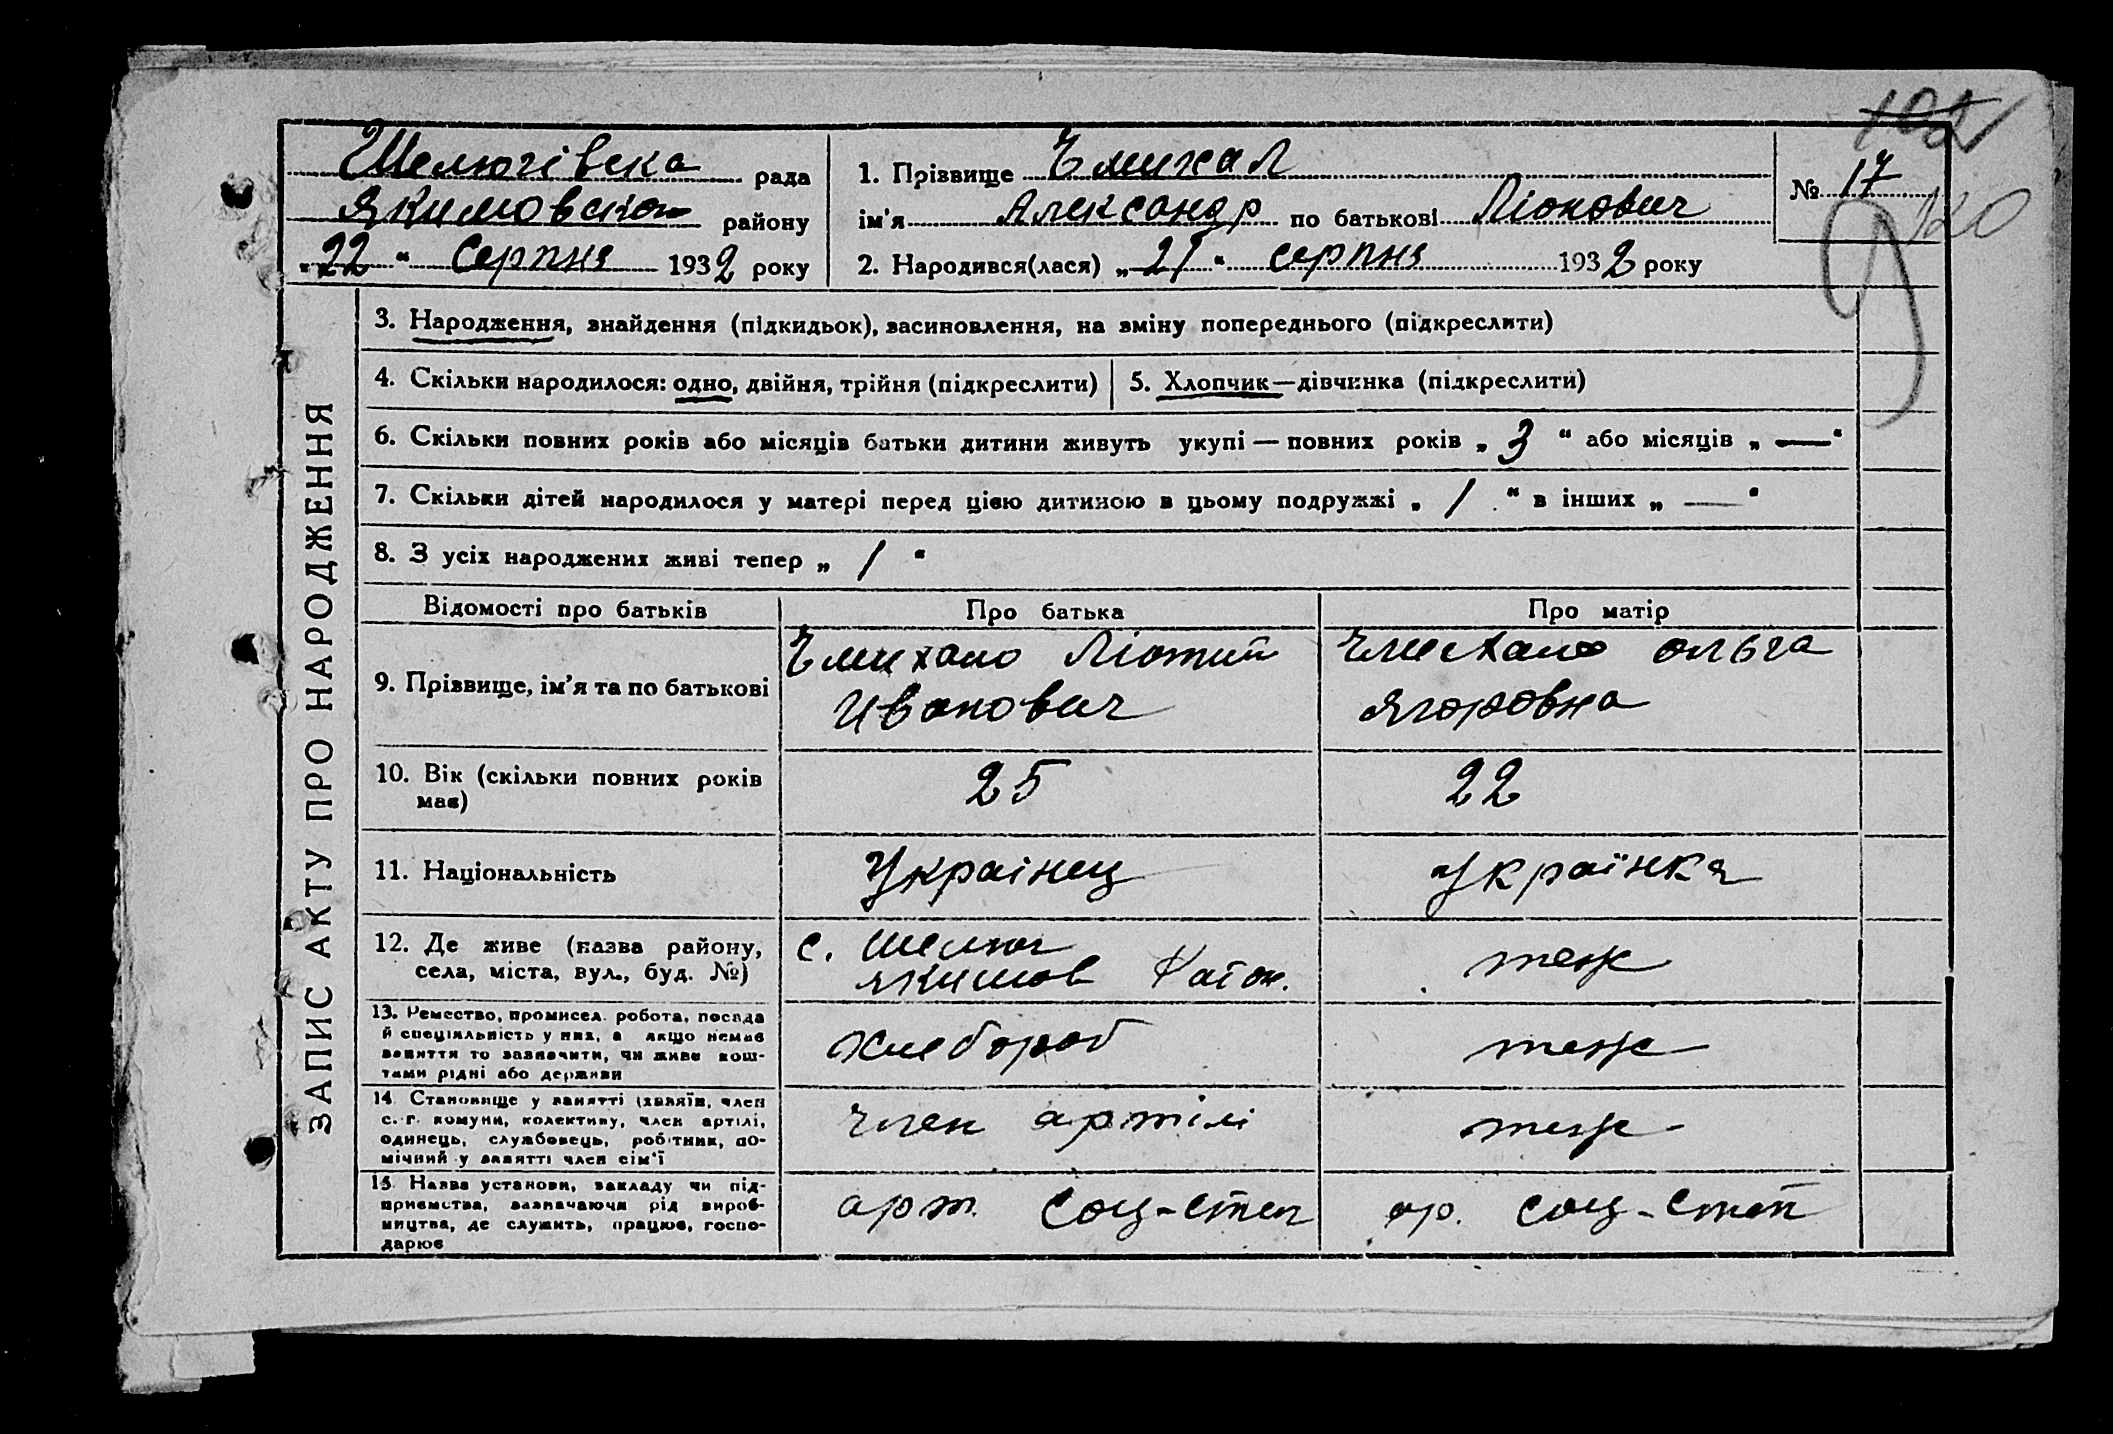 Шелюгівска рада
Якимовского району
„22“ Серпня 1932 року
1. Прізвище Чмихал
ім'я Александр по батькові Ліонович
2. Народився(лася) „21“ серпня 1932 року
№ 17
120
ЗАПИС АКТУ ПРО НАРОДЖЕННЯ
3. Народження, знайдення (підкидьок), засиновлення, на зміну попереднього (підкреслити)
4. Скільки народилося: одно, двійня, трійня (підкреслити)
5. Хлопчик—дівчинка (підкреслити)
6. Скільки повних років або місяців батьки дитини живуть укупі — повних років „ 3 “ або місяців „ — “
7. Скільки дітей народилося у матері перед цією дитиною в цьому подружжі „ 1 “ в інших „ — “
8. З усіх народжених живі тепер „ 1 “
Відомості про батьків
Про батька
Про матір
9. Прізвище, ім'я та по батькові
Чмихало
Ивонович
Чмихало ольга
Ягоровна
10. Вік (скільки повних років
має)
25
22
11. Національність
Українец
Українка
12. Де живе (назва району,
села, міста, вул., буд. №)
с. Шелюг
якимов Район.
теж
13. Ремество, промисел, робота, посада
й спеціяльність у них, а якщо немає
заняття то зазначити, чи живе кош-
тами рідні або держави
хлебороб
теж
14. Становище у занятті (хазяїн, член
с.-г. комуни, колективу, член артілі,
одинець, службовець, робітник, по-
мічний у занятті член сім'ї
член артілі
теж
15. Назва установи, закладу чи під-
приємства, зазначаючи рід вироб-
ництва, де служить, працює, госпо-
дарює
арт. Соц-степ
ар. Соц-степ